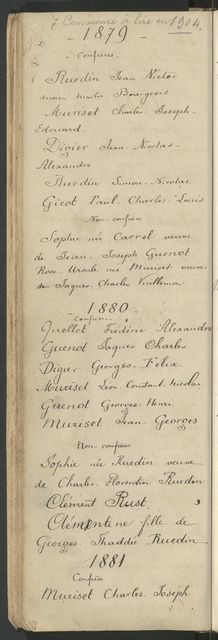 Commencé à lire en 1904.
1879
Confrères
Ruedin Jean Victor
ancien maître Bourgeois
Muriset Charles-Joseph-
Edouard
Digier Jean-Nicolas-
Alexandre
Ruedin Simon-Nicolas
Gicot Paul-Charles-Louis
Non-confrère
Sophie née Carrel veuve
de Jean-Joseph Guenot
Rose-Ursule née Muriset veuve
de Jaques-Charles Vuillemin
1880
Confrères
Quellet Frédéric Alexandre
Guenot Jaques Charles
Digier Georges-Félix
Muriset Léon-Constant-Nicolas
Guenot Georges-Henri
Muriset Jean-Georges
Non-confrère
Sophie née Ruedin veuve
de Charles-Florentin Ruedin
Clément Rust
Clémentine fille de
Georges-Thaddée Ruedin
1881
Confrère
Muriset Charles-Joseph